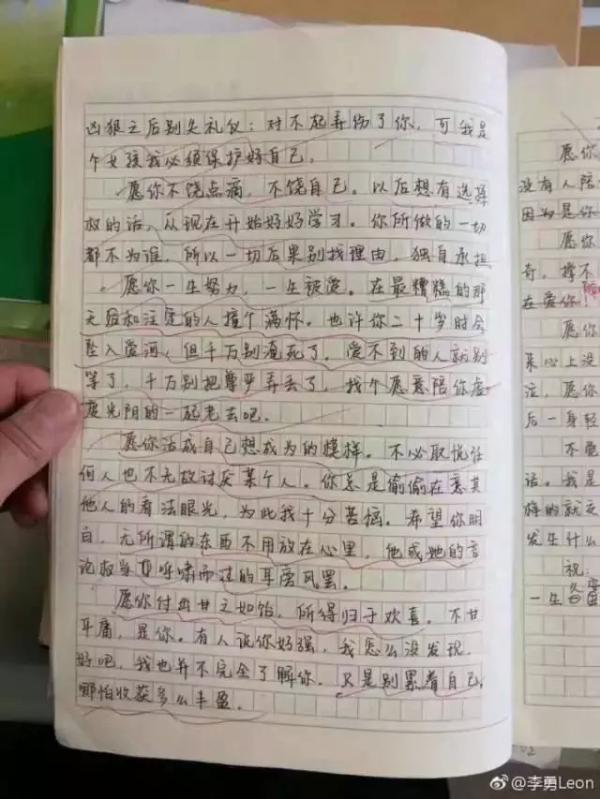 凶狠之后别失礼仪：对不起弄伤了你，可我是
个女孩我必须保护好自己。
愿你不饶点滴，不饶自己。以后想有选择
权的话，从现在开始好好学习。你所做的一切
都不为谁，所以一切后果别找理由，独自承担
愿你一生努力，一生被爱。在最糟糕的那
天能和注定的人撞个满怀。也许你二十岁时会
坠入爱河，但千万别淹死了，爱不到的人就别
等了，千万别把尊严弄丢了，找个愿意陪你虚
度光阴的一起老去吧。
愿你活成自己想成为的模样。不必取悦任
何人也不无故讨厌某个人。你总是偷偷在意其
他人的看法眼光，为此我十分苦恼。希望你明
白，无所谓的东西不用放在心里，他或她的言
论权当呼啸而过的耳旁风罢。
愿你付出甘之如饴，所得归于欢喜。不甘
平庸，是你。有人说你好强，我怎么没发现，
好吧，我也并不完全了解你。只是别累着自己，
哪怕收获多么丰盈。
愿你
没有人陪
因为是你
愿你
奇，撑不
在爱你！
愿你
某心上没
注，愿你
后一身轻
不要
话。我是
样的就交
发生什么
祝：
一生
@李勇Leon